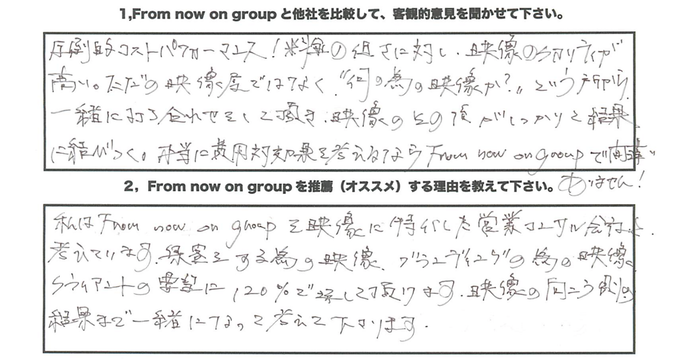 1,From now on group と他社を比較して、客観的意見を聞かせて下さい。
圧倒的コストパフォーマンス！料金の低さに対し、映像のクオリティが
高い。ただの映像屋ではなく、"何の為の映像か？"という所から
一緒に打ち合わせをして頂き、映像のその後がしっかりと結果
に結びつく。本当に費用対効果を考えるなら From now on group で間違い
ありません！
2，From now on group を推薦（オススメ）する理由を教えて下さい。
私は From now on group を映像に特化した営業コンサル会社と
考えています。 をする為の映像、ブランディングの為の映像、
クライアントの要望に120%で返して頂けます。映像の向こう側の
結果まで一緒になって考えて下さります。